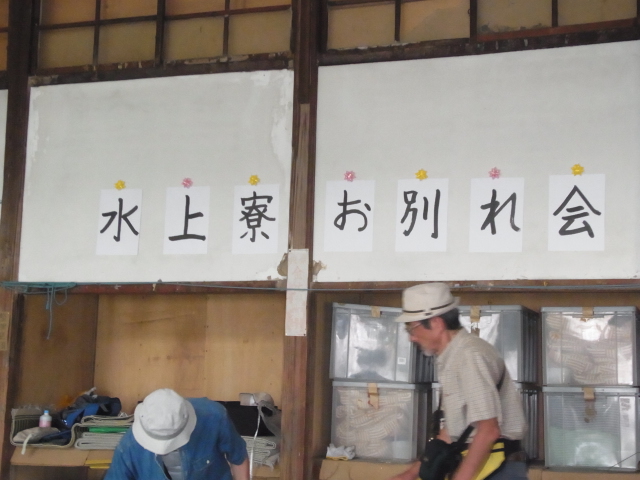 水上寮お別れ会